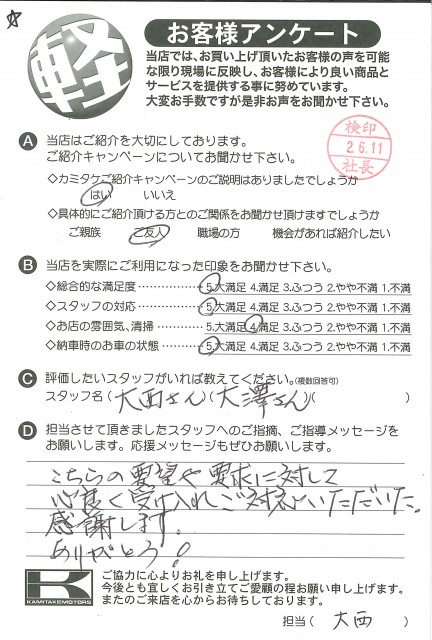 ☆
軽
お客様アンケート
当店では、お買い上げ頂いたお客様の声を可能
な限り現場に反映し、お客様により良い商品と
サービスを提供する事に努めています。
大変お手数ですが是非お声をお聞かせ下さい。
検印
26.11
社長
A 当店はご紹介を大切にしております。
ご紹介キャンペーンについてお聞かせ下さい。
◇カミタケご紹介キャンペーンのご説明はありましたでしょうか
はい いいえ
◇具体的にご紹介頂ける方とのご関係をお聞かせ頂けますでしょうか
ご親族 ご友人 職場の方 機会があれば紹介したい
B 当店を実際にご利用になった印象をお聞かせ下さい。
◇総合的な満足度……………5.大満足 4.満足 3.ふつう 2.やや不満 1.不満
◇スタッフの対応……………5.大満足 4.満足 3.ふつう 2.やや不満 1.不満
◇お店の雰囲気、清掃………5.大満足 4.満足 3.ふつう 2.やや不満 1.不満
◇納車時のお車の状態………5.大満足 4.満足 3.ふつう 2.やや不満 1.不満
C 評価したいスタッフがいれば教えてください。(複数回答可)
スタッフ名(大西さん)(大澤さん)( )
D 担当させて頂きましたスタッフへのご指摘、ご指導メッセージを
お願いします。応援メッセージもぜひお願いします。
こちらの要望や要求に対して
心良く受け入れご対応いただいた。
感謝します。
ありがとう!
K
KAMITAKEMOTORS
ご協力に心よりお礼を申し上げます。
今後とも宜しくお引き立てご愛顧の程お願い申し上げます。
またのご来店を心からお待ちしております。
担当( 大西 )